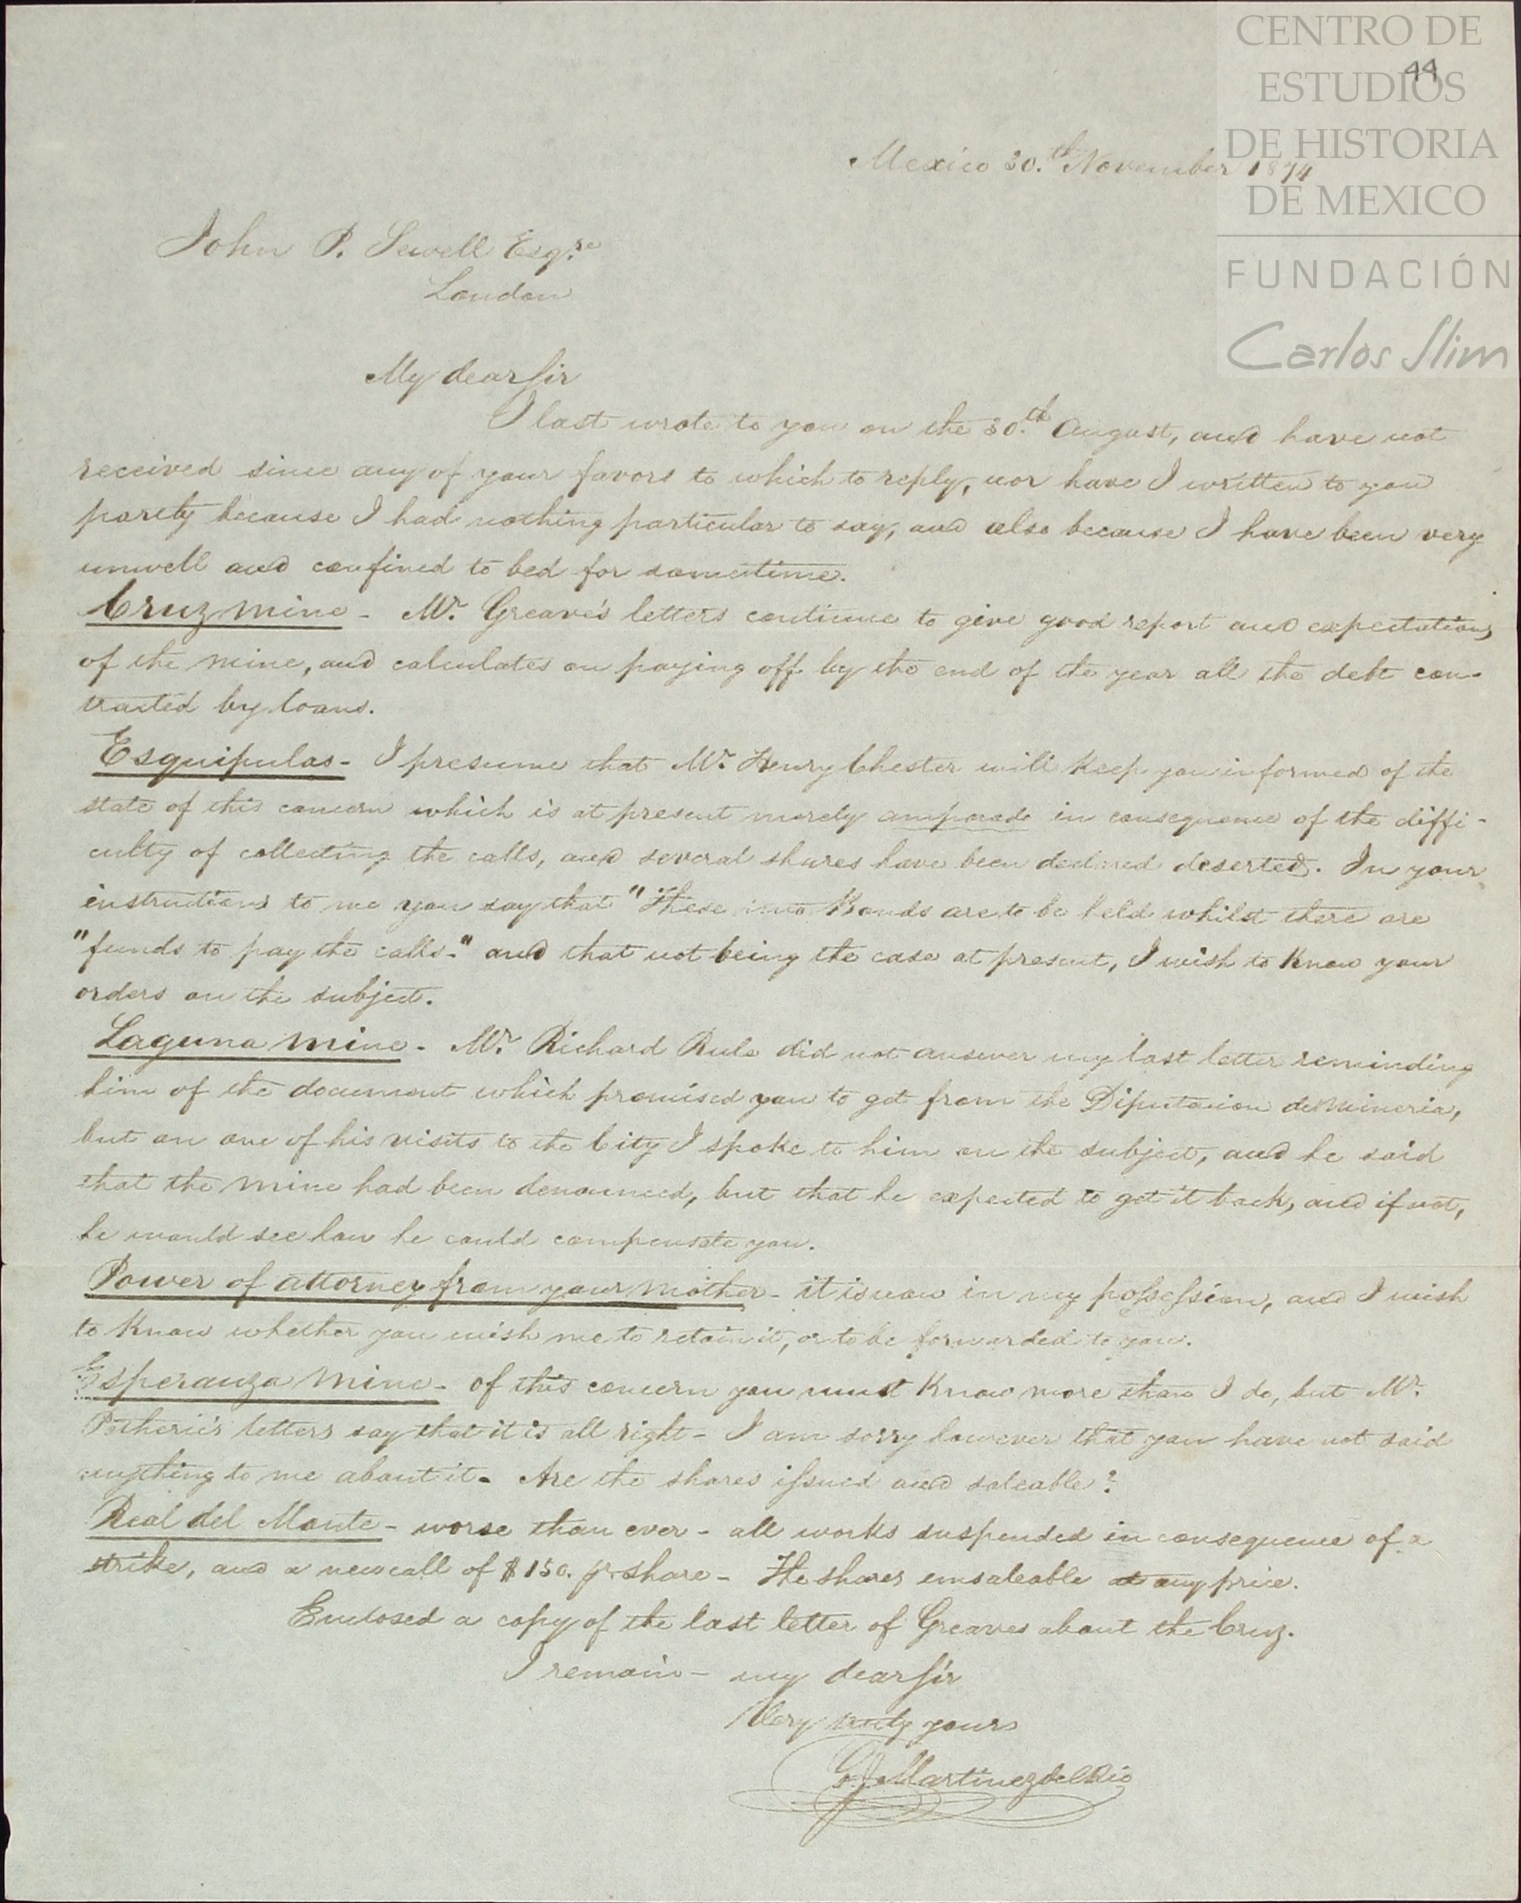 CENTRO DE
ESTUDIOS
44
DE HISTORIA
DE MEXICO
FUNDACIÓN
Carlos Slim
Mexico 30.th November 1874
John P. Sewell Esqre
London
My dear Sir
I last wrote to you on the 30.th August, and have not
received since any of your favors to which to reply, nor have I written to you
partly because I had nothing particular to say, and also because I have been very
unwell and confined to bed for sometime.
Cruz mine - Mr. Greave's letters continue to give good report and expectations
of the mine, and calculates on paying off by the end of the year all the debt con-
tracted by loans.
Esquipulas - I presume that Mr. Henry Chester will keep you informed of the
state of this concern which is at present merely amparada in consequence of the diffi-
culty of collecting the calls, and several shares have been declared deserted. In your
instructions to me you say that "These Bonds are to be held whilst there are
"funds to pay the calls." and that not being the case at present, I wish to know your
orders on the subject.
Laguna mine - Mr. Richard Rule did not answer my last letter reminding
him of the document which promised you to get from the Diputacion de Mineria,
but on one of his visits to the City I spoke to him on the subject, and he said
that the mine had been denounced, but that he expected to get it back, and if not,
he would see how he could compensate you.
Power of attorney from your mother - it is now in my possession, and I wish
to know whether you wish me to retain it, or to be forwarded to you.
Esperanza mine - of this concern you must know more than I do, but Mr.
letters say that it is all right - I am sorry however that you have not said
anything to me about it - Are the shares issued and saleable?
Real del Monte - worse than ever - all works suspended in consequence of a
strike, and a new call of $150. pr share - The shares unsaleable at any price.
Enclosed a copy of the last letter of Greaves about the Cruz.
I remain - my dear Sir
Very truly yours
G. J. Martinez del Rio